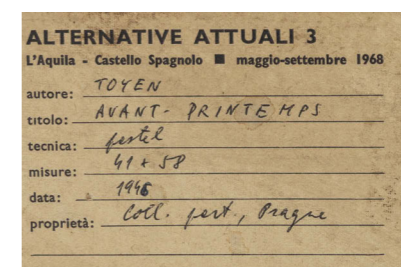 ALTERNATIVE ATTUALI 3
L'Aquila - Castello Spagnolo ■ maggio-settembre 1968
autore: TOYEN
titolo: AVANT-PRINTEMPS
tecnica: pastel
misure: 41 x 58
data: 1946
proprietà: Coll. part., Prague